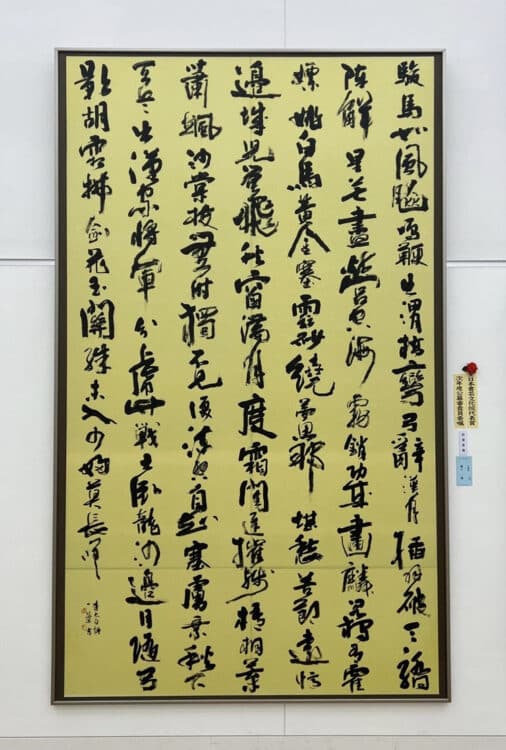 駿馬如風飈鳴鞭出渭橋彎弓辭漢月插羽破天驕
陣解星芒盡營空海霧銷功成畫麟閣獨有霍
嫖姚白馬黃金塞雲砂繞夢思那堪愁苦節遠憶
邊城兒螢飛秋窗滿月度霜閨遲摧殘梧桐葉
蕭颯沙棠枝無時獨不見流淚空自知塞虜乘秋下
天兵出漢家將軍分虎竹戰士臥龍沙邊月隨弓
影胡霜拂劍花玉關殊未入少婦莫長嗟
李太白詩
全日本書芸文化院代表賞
次年度公募審査員委嘱